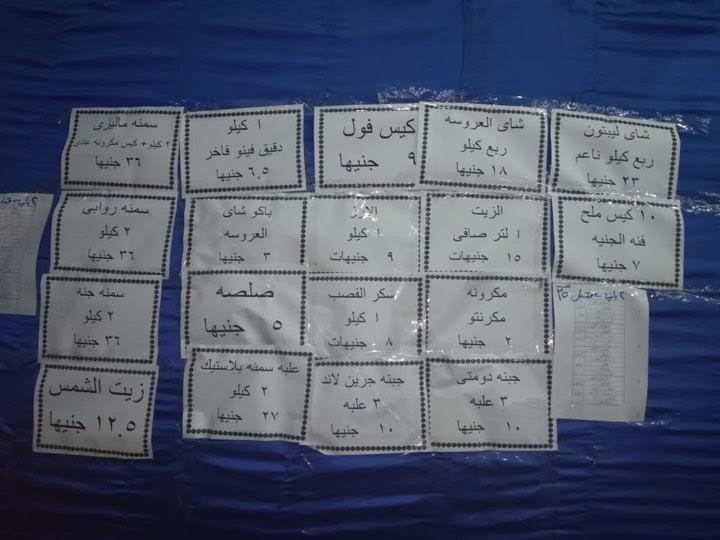 شاى ليبتون
ربع كيلو ناعم
٢٣ جنيها
شاى العروسه
ربع كيلو
١٨ جنيها
كيس فول
٩ جنيها
١ كيلو
دقيق فينو فاخر
٦,٥ جنيها
سمنه ماليزى
٢ كيلو+ كيس مكرونه
٣٦ جنيها
١٠ كيس ملح
فئه الجنيه
٧ جنيها
الزيت
١ لتر صافى
١٥ جنيهات
الارز
١ كيلو
٩ جنيهات
باكو شاى
العروسه
٣ جنيها
سمنه روابى
٢ كيلو
٣٦ جنيها
مكرونه
مكرنتو
٢ جنيها
سكر القصب
١ كيلو
٨ جنيهات
صلصه
٥ جنيها
سمنه جنه
٢ كيلو
٣٦ جنيها
جبنه دومتى
٣ علبه
١٠ جنيها
جبنه جرين لاند
٣ علبه
١٠ جنيها
علبه سمنه بلاستيك
٢ كيلو
٢٧ جنيها
زيت الشمس
١٢,٥ جنيها